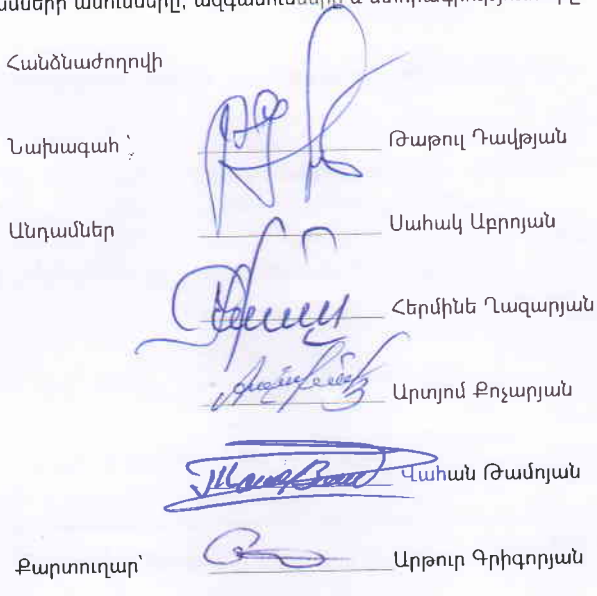 անունները, ազգանունները և
Հանձնաժողովի
Նախագահ ՝ Թաթուլ Դավթյան
Անդամներ Սահակ Աբրոյան
Հերմինե Ղազարյան
Արտյոմ Քոչարյան
Վահան Թամոյան
Քարտուղար՝ Արթուր Գրիգորյան